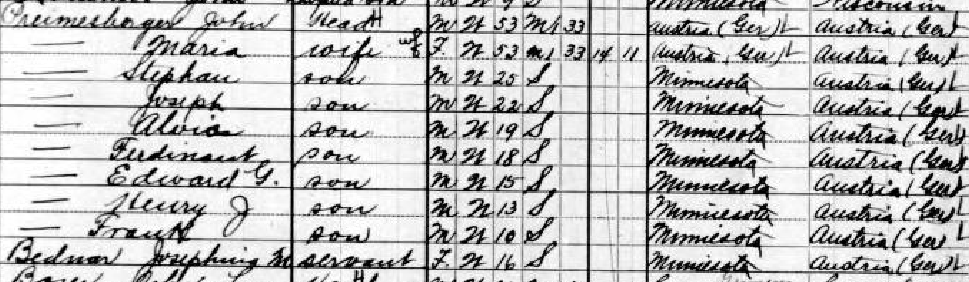 Minnesota Wisconsin
Preimesberger John Head M W 53 M1 33 Austria (Ger) Austria (Ger)
— Maria wife F W 53 M1 33 14 11 Austria (Ger) Austria (Ger)
— Stephan son M W 25 S Minnesota Austria (Ger)
— Joseph son M W 22 S Minnesota Austria (Ger)
— Alvis son M W 19 S Minnesota Austria (Ger)
— Ferdinant son M W 18 S Minnesota Austria (Ger)
— Edward G. son M W 15 S Minnesota Austria (Ger)
— Henry J son M W 13 S Minnesota Austria (Ger)
— Frank son M W 10 S Minnesota Austria (Ger)
Bednar Josephine M servant F W 16 S Minnesota Austria (Ger)